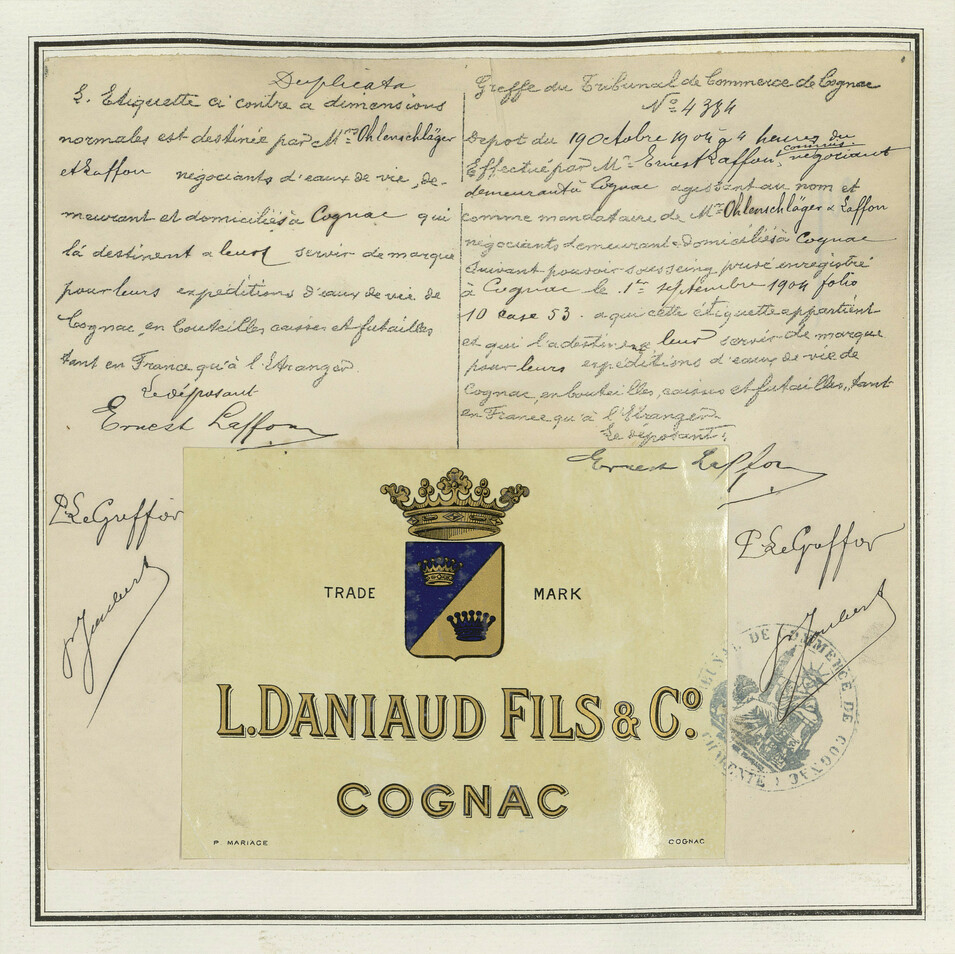 Duplicata
L'Etiquette ci contre a dimensions
normales est destinée par Mrs Ohlenschläger
et Laffon negociants d'eaux de vie, de-
meurant et domiciliés à Cognac qui
la destinent a leur servir de marque
pour leurs expéditions d'eaux de vie de
Cognac, en bouteilles caisses et futailles
tant en France qu'à l'Etranger.
Le déposant
Ernest Laffon
P. Le Greffier
Greffe du Tribunal de Commerce de Cognac
No 4384
Depot du 19 Octobre 1904 à 4 heures du
Effectué par Mr Ernest Laffon, commis négociant
demeurant à Cognac agissant au nom et
comme mandataire de Mrs Ohlenschläger & Laffon
négociants demeurant & domiciliés à Cognac
suivant pouvoir sous seing privé enregistré
à Cognac le 1er septembre 1904 folio
10 case 53. a qui cette étiquette appartient
et qui l'a destinent leur servir de marque
pour leurs expéditions d'eaux de vie de
Cognac, en bouteilles, caisses et futailles, tant
en France qu'à l'Etranger
Le déposant:
Ernest Laffon
P. Le Greffier
TRADE MARK
L. DANIAUD FILS & Co.
COGNAC
P. MARIAGE
COGNAC
TRIBUNAL DE COMMERCE DE COGNAC
CHARENTE